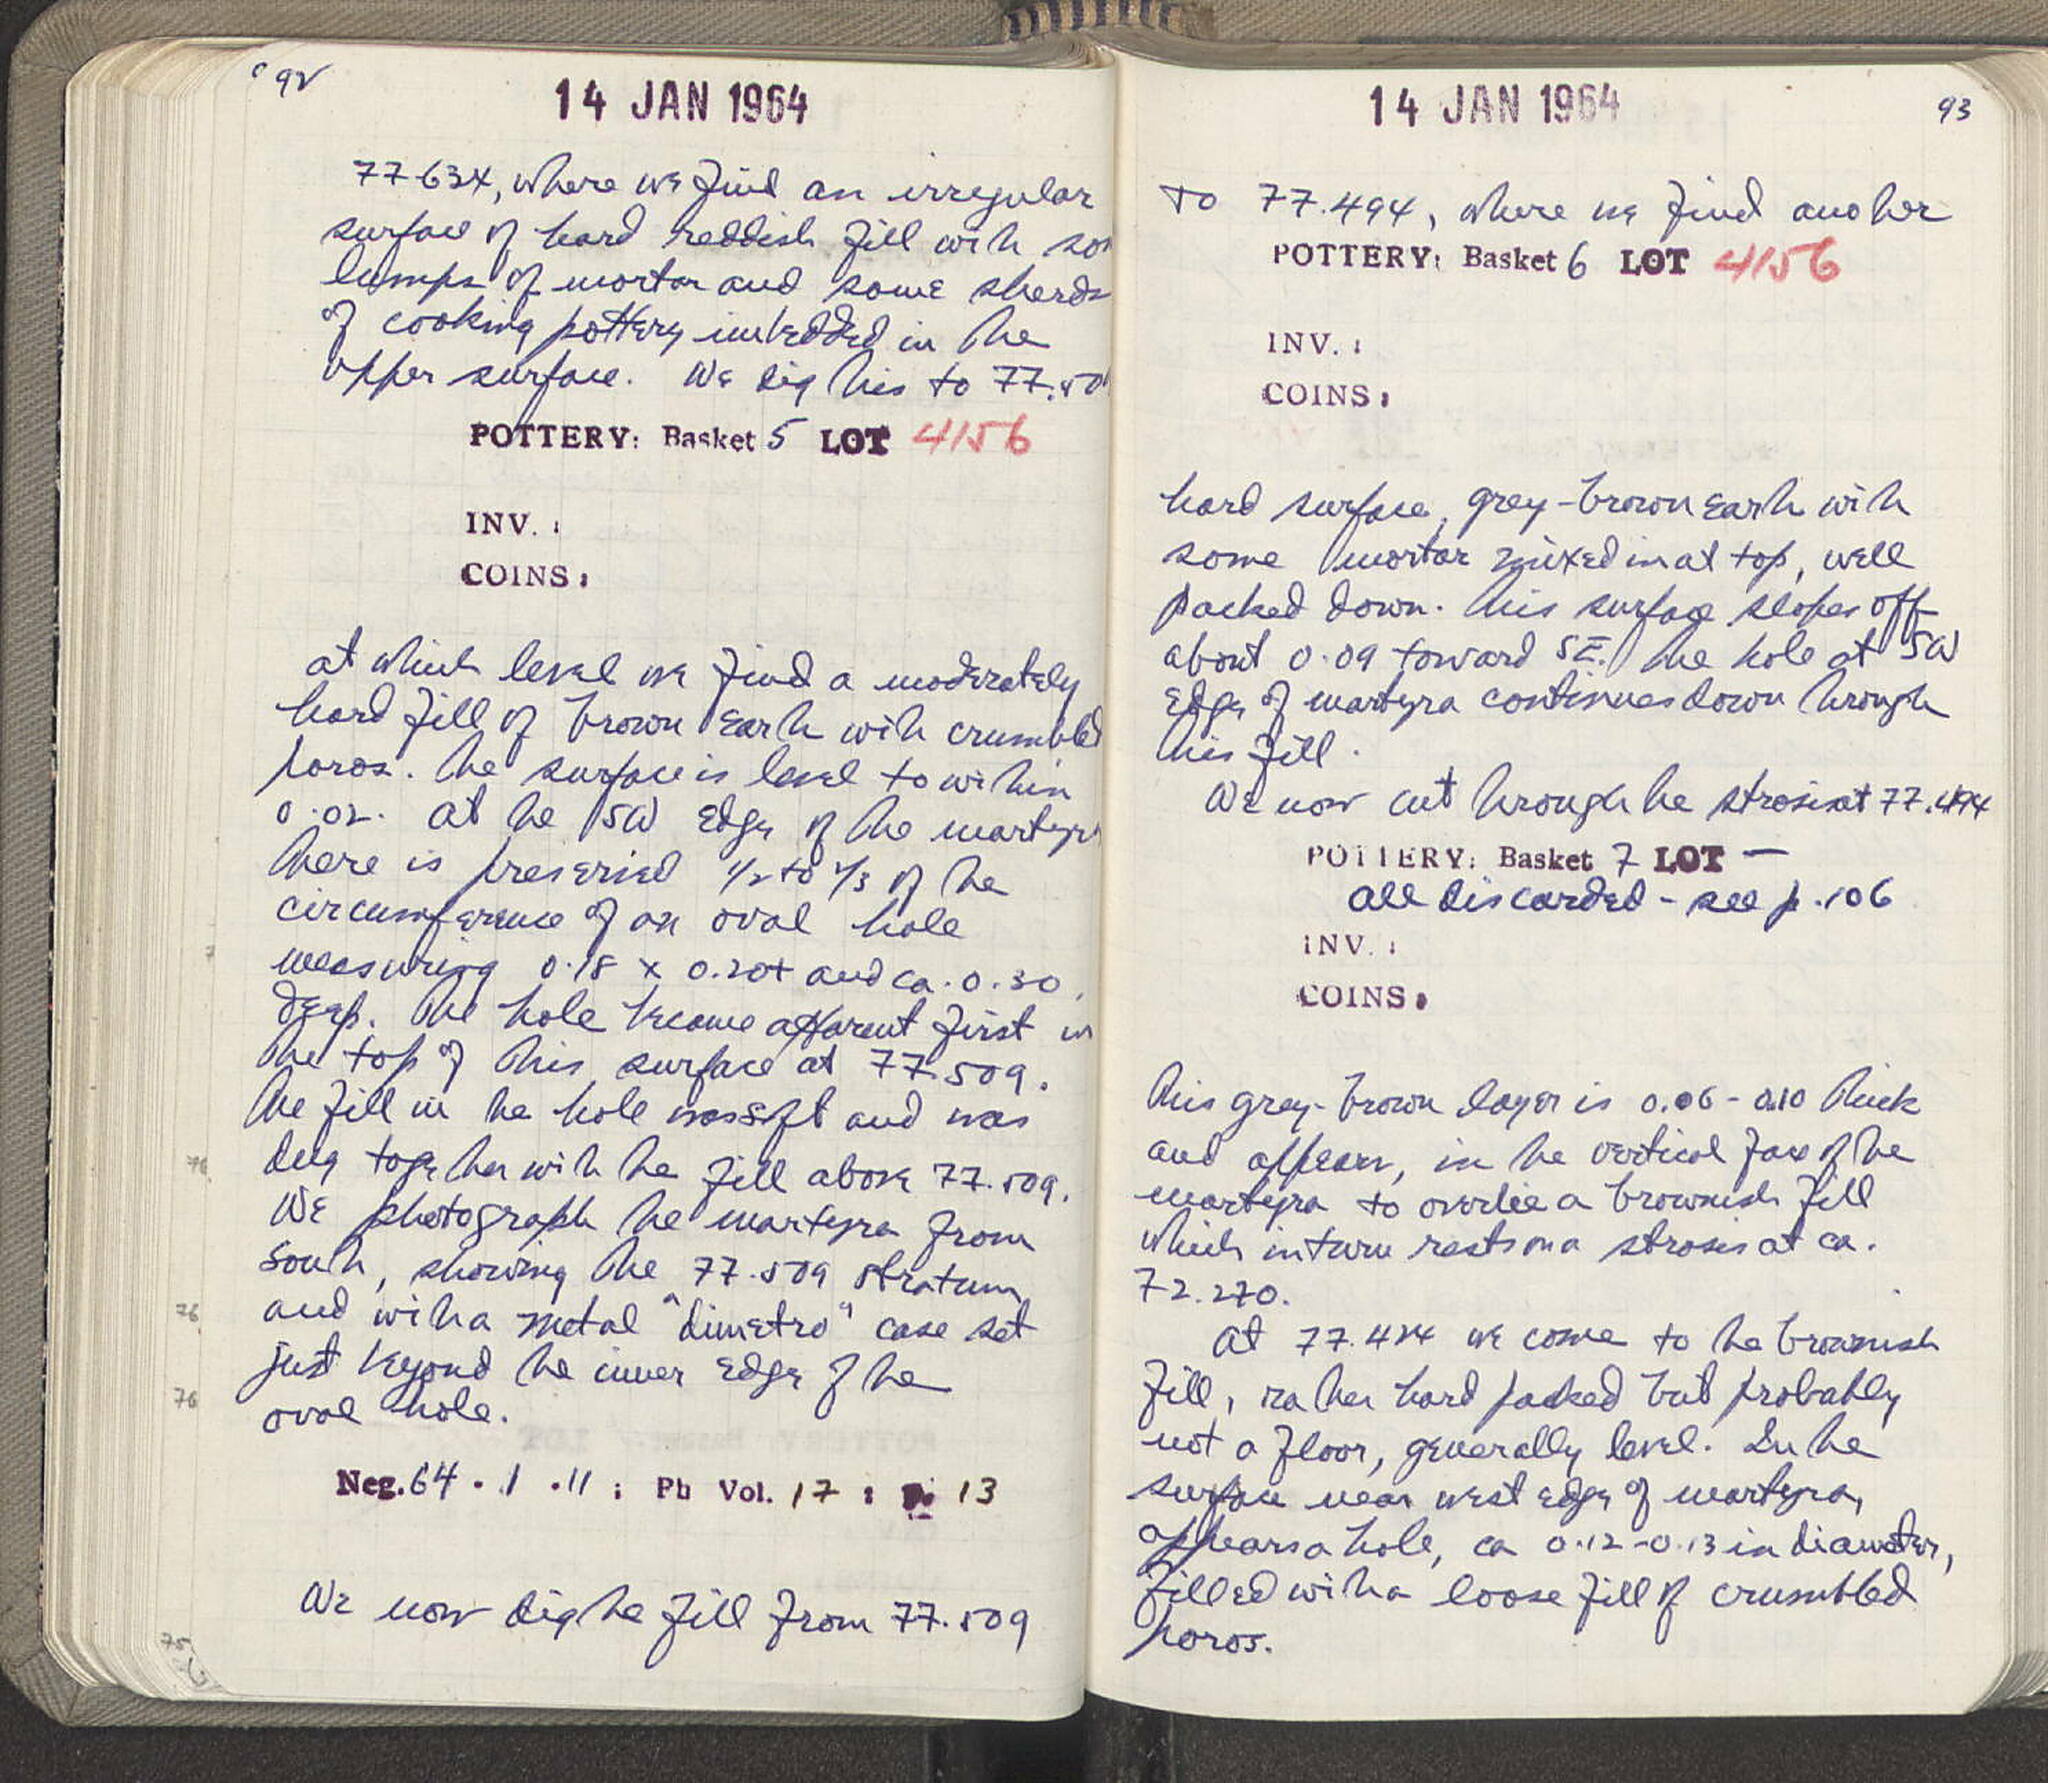 92
14 JAN 1964
77.634, where we find an irregular
surface of hard reddish fill with
lumps of mortar and some sherds
of cooking pottery imbedded in the
upper surface. We dig this to 77.50
POTTERY: Basket 5 LOT 4156
INV. :
COINS :
at which level we find a moderately
hard fill of brown earth with crumbled
poros. The surface is level to within
0.02. At the SW edge of the martyra
there is preserved 1/2 to 1/3 of the
circumference of an oval hole
measuring 0.18 x 0.20+ and ca. 0.30
deep. The hole became apparent first in
the top of this surface at 77.509.
The fill in the hole was soft and was
dug together with the fill above 77.509.
We photograph the martyra from
south, showing the 77.509 stratum
and with a metal "dimetro" case set
just beyond the inner edge of the
oval hole.
Neg. 64 . 1 . 11 ; Ph Vol. 17 : p. 13
We now dig the fill from 77.509
76
76
76
75
14 JAN 1964
93
to 77.494, where we find another
POTTERY: Basket 6 LOT 4156
INV. :
COINS :
hard surface, grey-brown earth with
some mortar mixed in at top, well
packed down. This surface slopes off
about 0.09 toward SE. The hole at SW
edge of martyra continues down through
this fill.
We now cut through the strosis at 77.494
POTTERY: Basket 7 LOT —
all discarded - see p. 106
INV. :
COINS :
This grey-brown layer is 0.06 - 0.10 thick
and appears, in the vertical face of the
martyra to overlie a brownish fill
which in turn rests on a strosis at ca.
72.270.
At 77.424 we come to the brownish
fill, rather hard packed but probably
not a floor, generally level. In the
surface near west edge of martyra,
appears a hole, ca 0.12-0.13 in diameter,
filled with a loose fill of crumbled
poros.